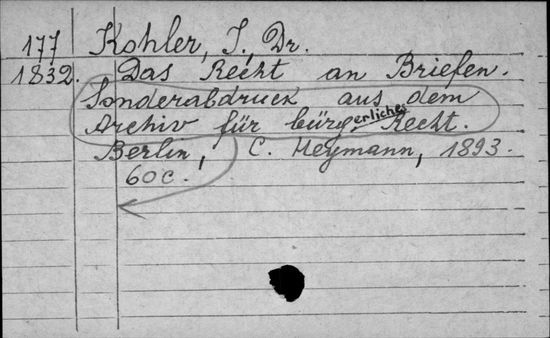 177 Kohler, J., Dr.
1832. Das Recht an Briefen.
Sonderabdruck aus dem
Archiv für bürgerliches Recht.
Berlin, C. Heymann, 1893.
60c.